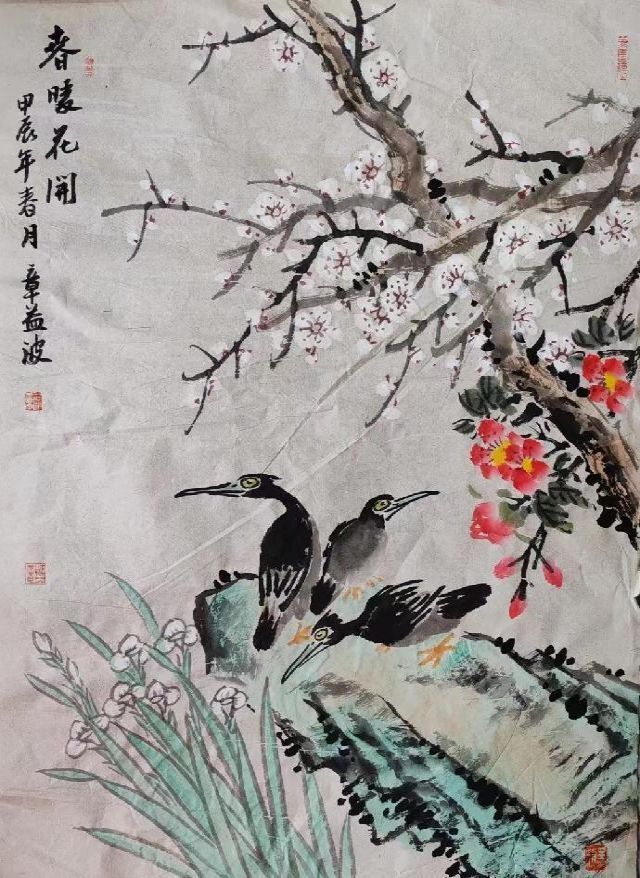 春暖花開
甲辰年春月章益波